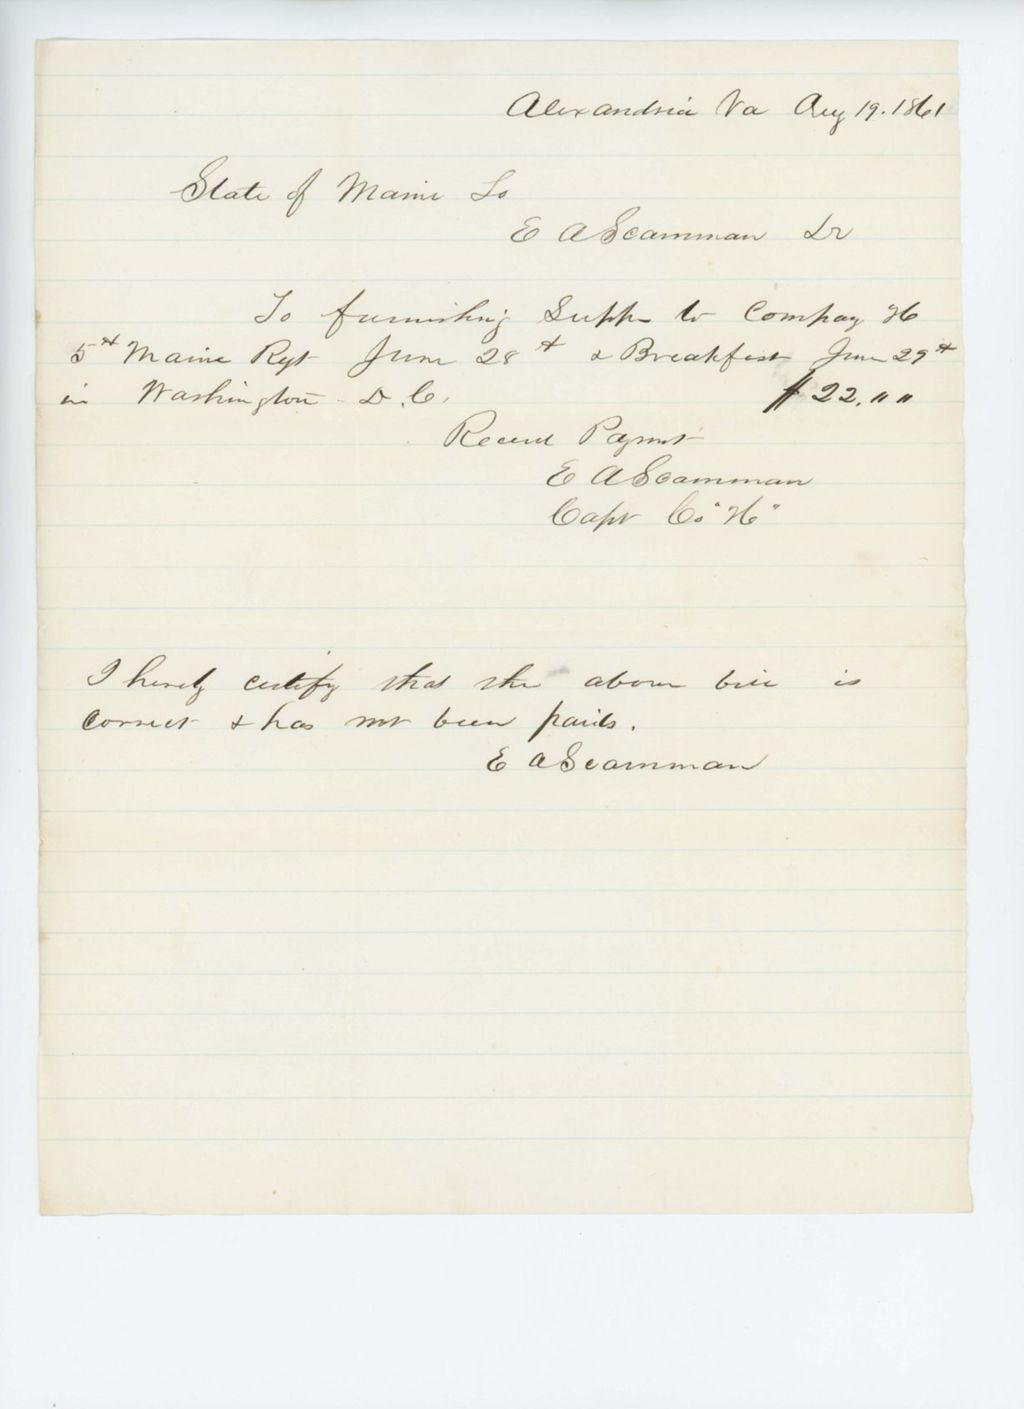 Alexandria Va Aug 19. 1861
State of Maine To
E A Scamman Dr
To furnishing Supp- to Compay "H
5th Maine Regt June 28th & Breakfast June 29th
in Washington D.C. $22,""
Recevd Paymnt
E A Scamman
Capt Co "H"
I hereby certify that the above bill is
correct & has not been paid.
E A Scamman